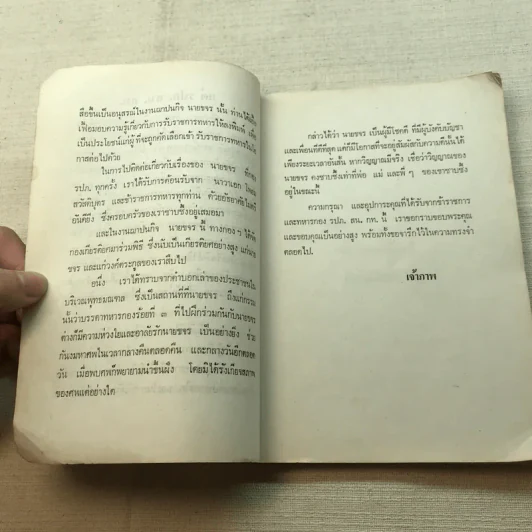 สือขึ้นเป็นอนุสรณ์ในงานฌาปนกิจ นายขจร นั้น ท่านได้
เพื่อมอบความรู้เกี่ยวกับการรับราชการทหารให้ลงพิมพ์
เป็นประโยชน์แก่ผู้ที่จะถูกคัดเลือกเข้า รับราชการทหาร
การต่อไปด้วย
ในการไปติดต่อเกี่ยวกับเรื่องของ นายขจร ที่กอง
รปภ. ทุกครั้ง เราได้รับการต้อนรับจาก นาวาเอก
สวัสดิบุตร และข้าราชการทหารทุกท่าน ด้วยอัธยาศัยไมตรี
อันดียิ่ง ซึ่งครอบครัวของเราซาบซึ้งอยู่เสมอมา
และในงานฌาปนกิจ นายขจร นี้ ทางกอง ฯ ได้
กองเกียรติยศมาร่วมพิธี ซึ่งนับเป็นเกียรติยศอย่างสูง แก่นาย
ขจร และแก่วงศ์ตระกูลของเราสืบไป
อนึ่ง เราได้ทราบจากคำบอกเล่าของประชาชนใน
บริเวณพุทธมณฑล ซึ่งเป็นสถานที่ที่นายขจร ถึงแก่กรรม
นั้นว่าบรรดาทหารกองร้อยที่ ๓ ที่ไปฝึกร่วมกันกับนายขจร
ต่างก็มีความห่วงใยและอาลัยรักนายขจร เป็นอย่างยิ่ง ช่วย
กันงมหาศพในเวลากลางคืนตลอดคืน และกลางวันอีกตลอด
วัน เมื่อพบศพก็พยายามนำขึ้นฝั่ง โดยมิได้รังเกียจสภาพ
ของศพแต่อย่างใด
กล่าวได้ว่า นายขจร เป็นผู้มีโชคดี ที่มีผู้บังคับบัญชา
และเพื่อนที่ดีที่สุด แต่ก็มีโอกาสที่จะอยู่สัมผัสกับความดีนั้นได้
เพียงระยะเวลาอันสั้น หากวิญญาณมีจริง เชื่อว่าวิญญาณของ
นายขจร คงซาบซึ้งเท่าที่พ่อ แม่ และพี่ๆ ของเขาซาบซึ้ง
อยู่ในขณะนี้
ความกรุณา และอุปการะคุณที่ได้รับจากข้าราชการ
และทหารกอง รปภ. สน. กท. นี้ เราขอกราบขอบพระคุณ
และขอบคุณเป็นอย่างสูง พร้อมทั้งขอจารึกไว้ในความทรงจำ
ตลอดไป.
เจ้าภาพ